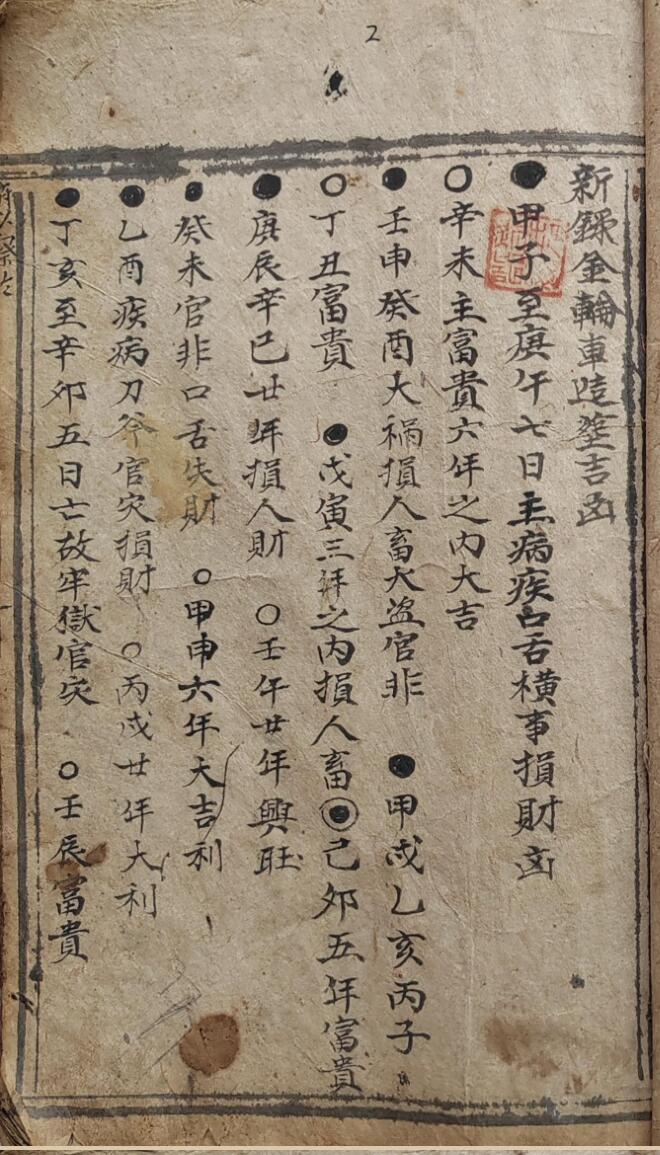 2
新錄金輪車造塟吉凶
●甲子至庚午七日主病疾口舌橫事損財凶
○辛未主富貴六年之内大吉
●壬申癸酉大禍損人畜火盗官非 ●甲戌乙亥丙子
○丁丑富貴 ●戊寅三年之内損人畜◉己夘五年富貴
●庚辰辛巳廿年損人財 ○壬午廿年興旺
●癸未官非口舌失財 ○甲申六年大吉利
●乙酉疾病刀斧官灾損財 ○丙戌廿年大利
●丁亥至辛夘五日亡故牢獄官灾 ○壬辰富貴